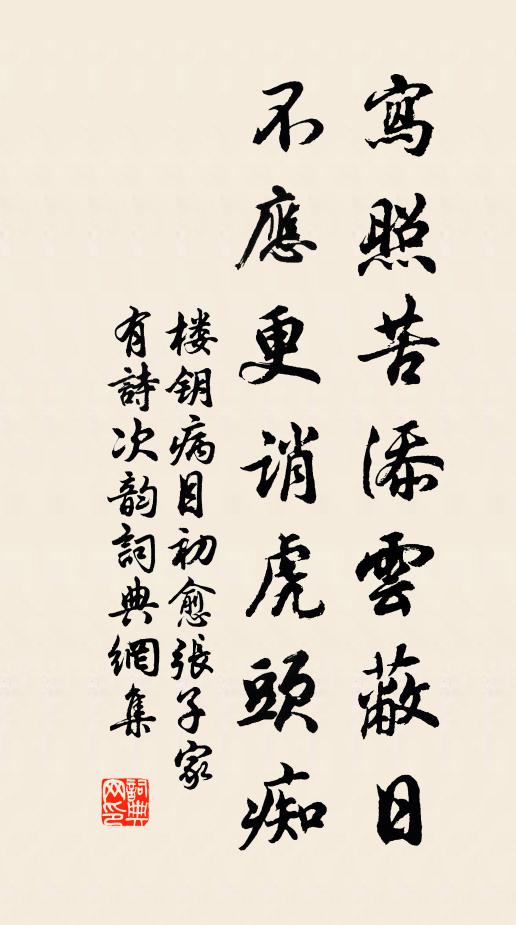 寫照苦添雲蔽日
不應更誚虎頭痴
楼钥病目初愈張子家
有詩次韵詞典網集
詞典网印